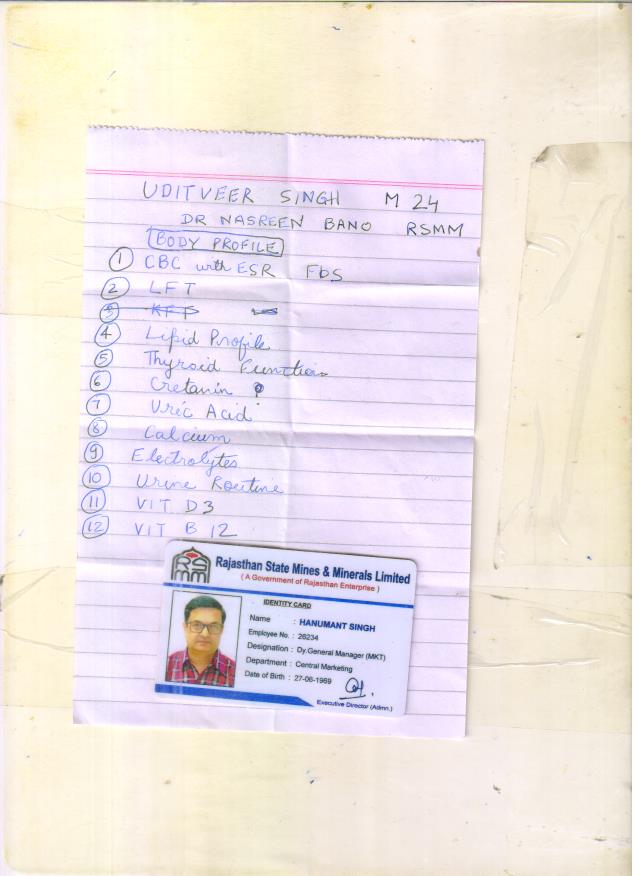 UDITVEER SINGH M 24
DR NASREEN BANO RSMM
BODY PROFILE
1 CBC with ESR FbS
2 LFT
3 KFT
4 Lipid Profile
5 Thyroid Function
6 Cretanin ?
7 Uric Acid
8 Calcium
9 Electrolytes
10 Urine Routine
11 VIT D3
12 VIT B 12
RSMM
Rajasthan State Mines & Minerals Limited
( A Government of Rajasthan Enterprise )
IDENTITY CARD
Name : HANUMANT SINGH
Employee No. : 26234
Designation : Dy.General Manager (MKT)
Department : Central Marketing
Date of Birth : 27-06-1969
Executive Director (Admn.)